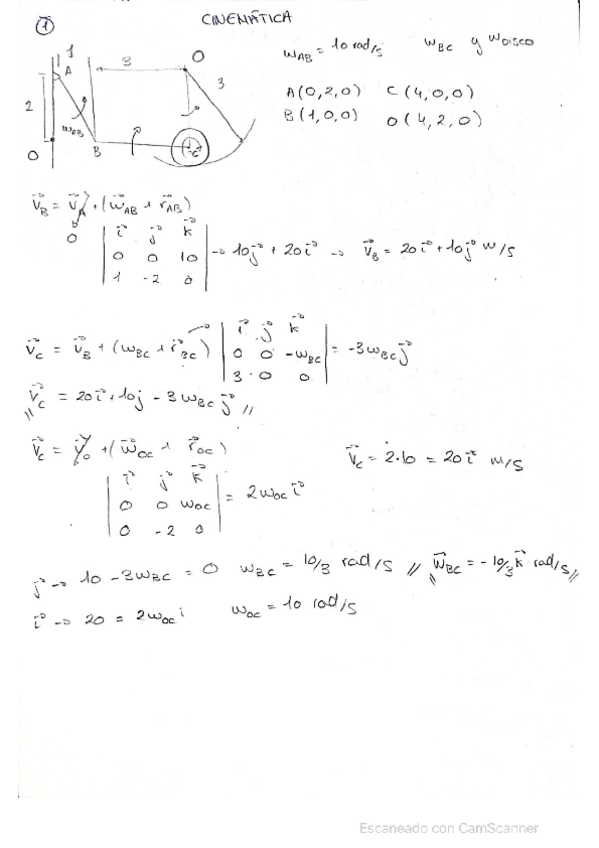 ① CINEMÁTICA
ω_AB = 10 rad/s ω_BC y ω_DISCO
A(0,2,0) C(4,0,0)
B(1,0,0) O(4,2,0)
1 A 3 O 3
2 ω_AB
O B C
v⃗_B = v⃗_A + (ω⃗_AB ∧ r⃗_AB)
0
i⃗ j⃗ k⃗
0 0 10 → 10j⃗ + 20i⃗ → v⃗_B = 20i⃗ + 10j⃗ m/s
1 -2 0
v⃗_C = v⃗_B + (ω_BC ∧ r⃗_BC) i⃗ j⃗ k⃗
0 0 -ω_BC = -3ω_BC j⃗
3 0 0
v⃗_C = 20i⃗ + 10j - 3ω_BC j⃗ //
v⃗_C = v⃗_O + (ω⃗_OC ∧ r⃗_OC) v⃗_C = 2·10 = 20i⃗ m/s
i⃗ j⃗ k⃗
0 0 ω_OC = 2ω_OC i⃗
0 -2 0
j⃗ → 10 - 3ω_BC = 0 ω_BC = 10/3 rad/s // ω⃗_BC = -10/3 k⃗ rad/s //
i⃗ → 20 = 2ω_OC i ω_OC = 10 rad/s
Escaneado con CamScanner